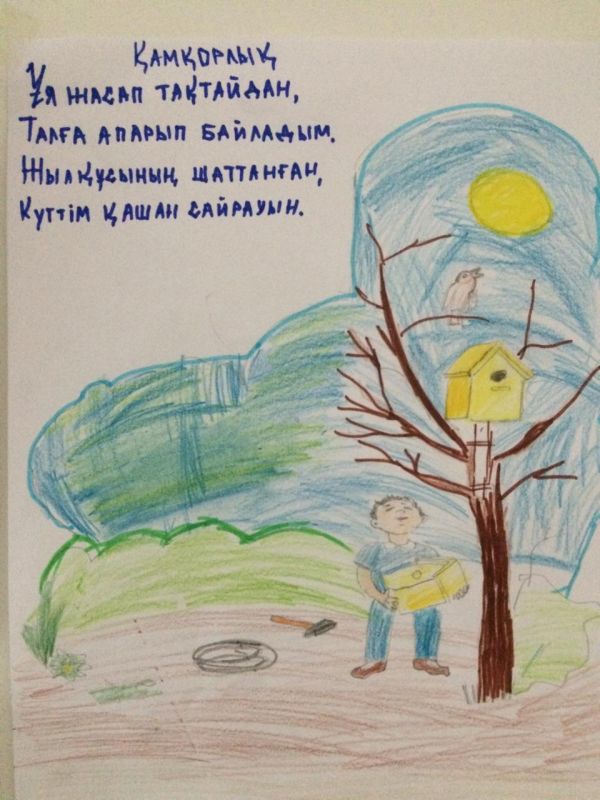 ҚАМҚОРЛЫҚ
ҰЯ ЖАСАП ТАҚТАЙДАН,
ТАЛҒА АПАРЫП БАЙЛАДЫМ.
ЖЫЛҚҰСЫНЫҢ ШАТТАНҒАН,
КҮТТІМ ҚАШАН САЙРАУЫН.